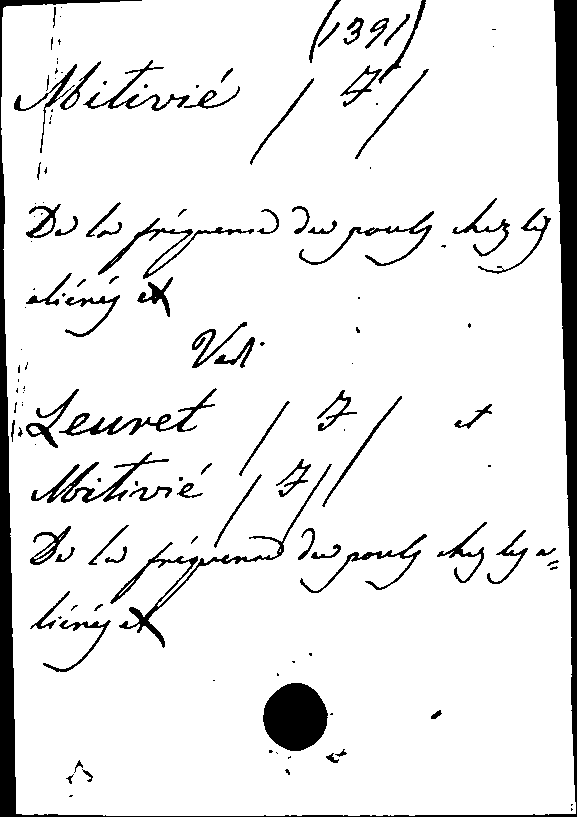 (1391)
Mitivié / F /
De la fréquence du pouls chez les
aliénés et
Vedi
Leuret / F / et
Mitivié / F /
De la fréquence du pouls chez les a=
liénés et